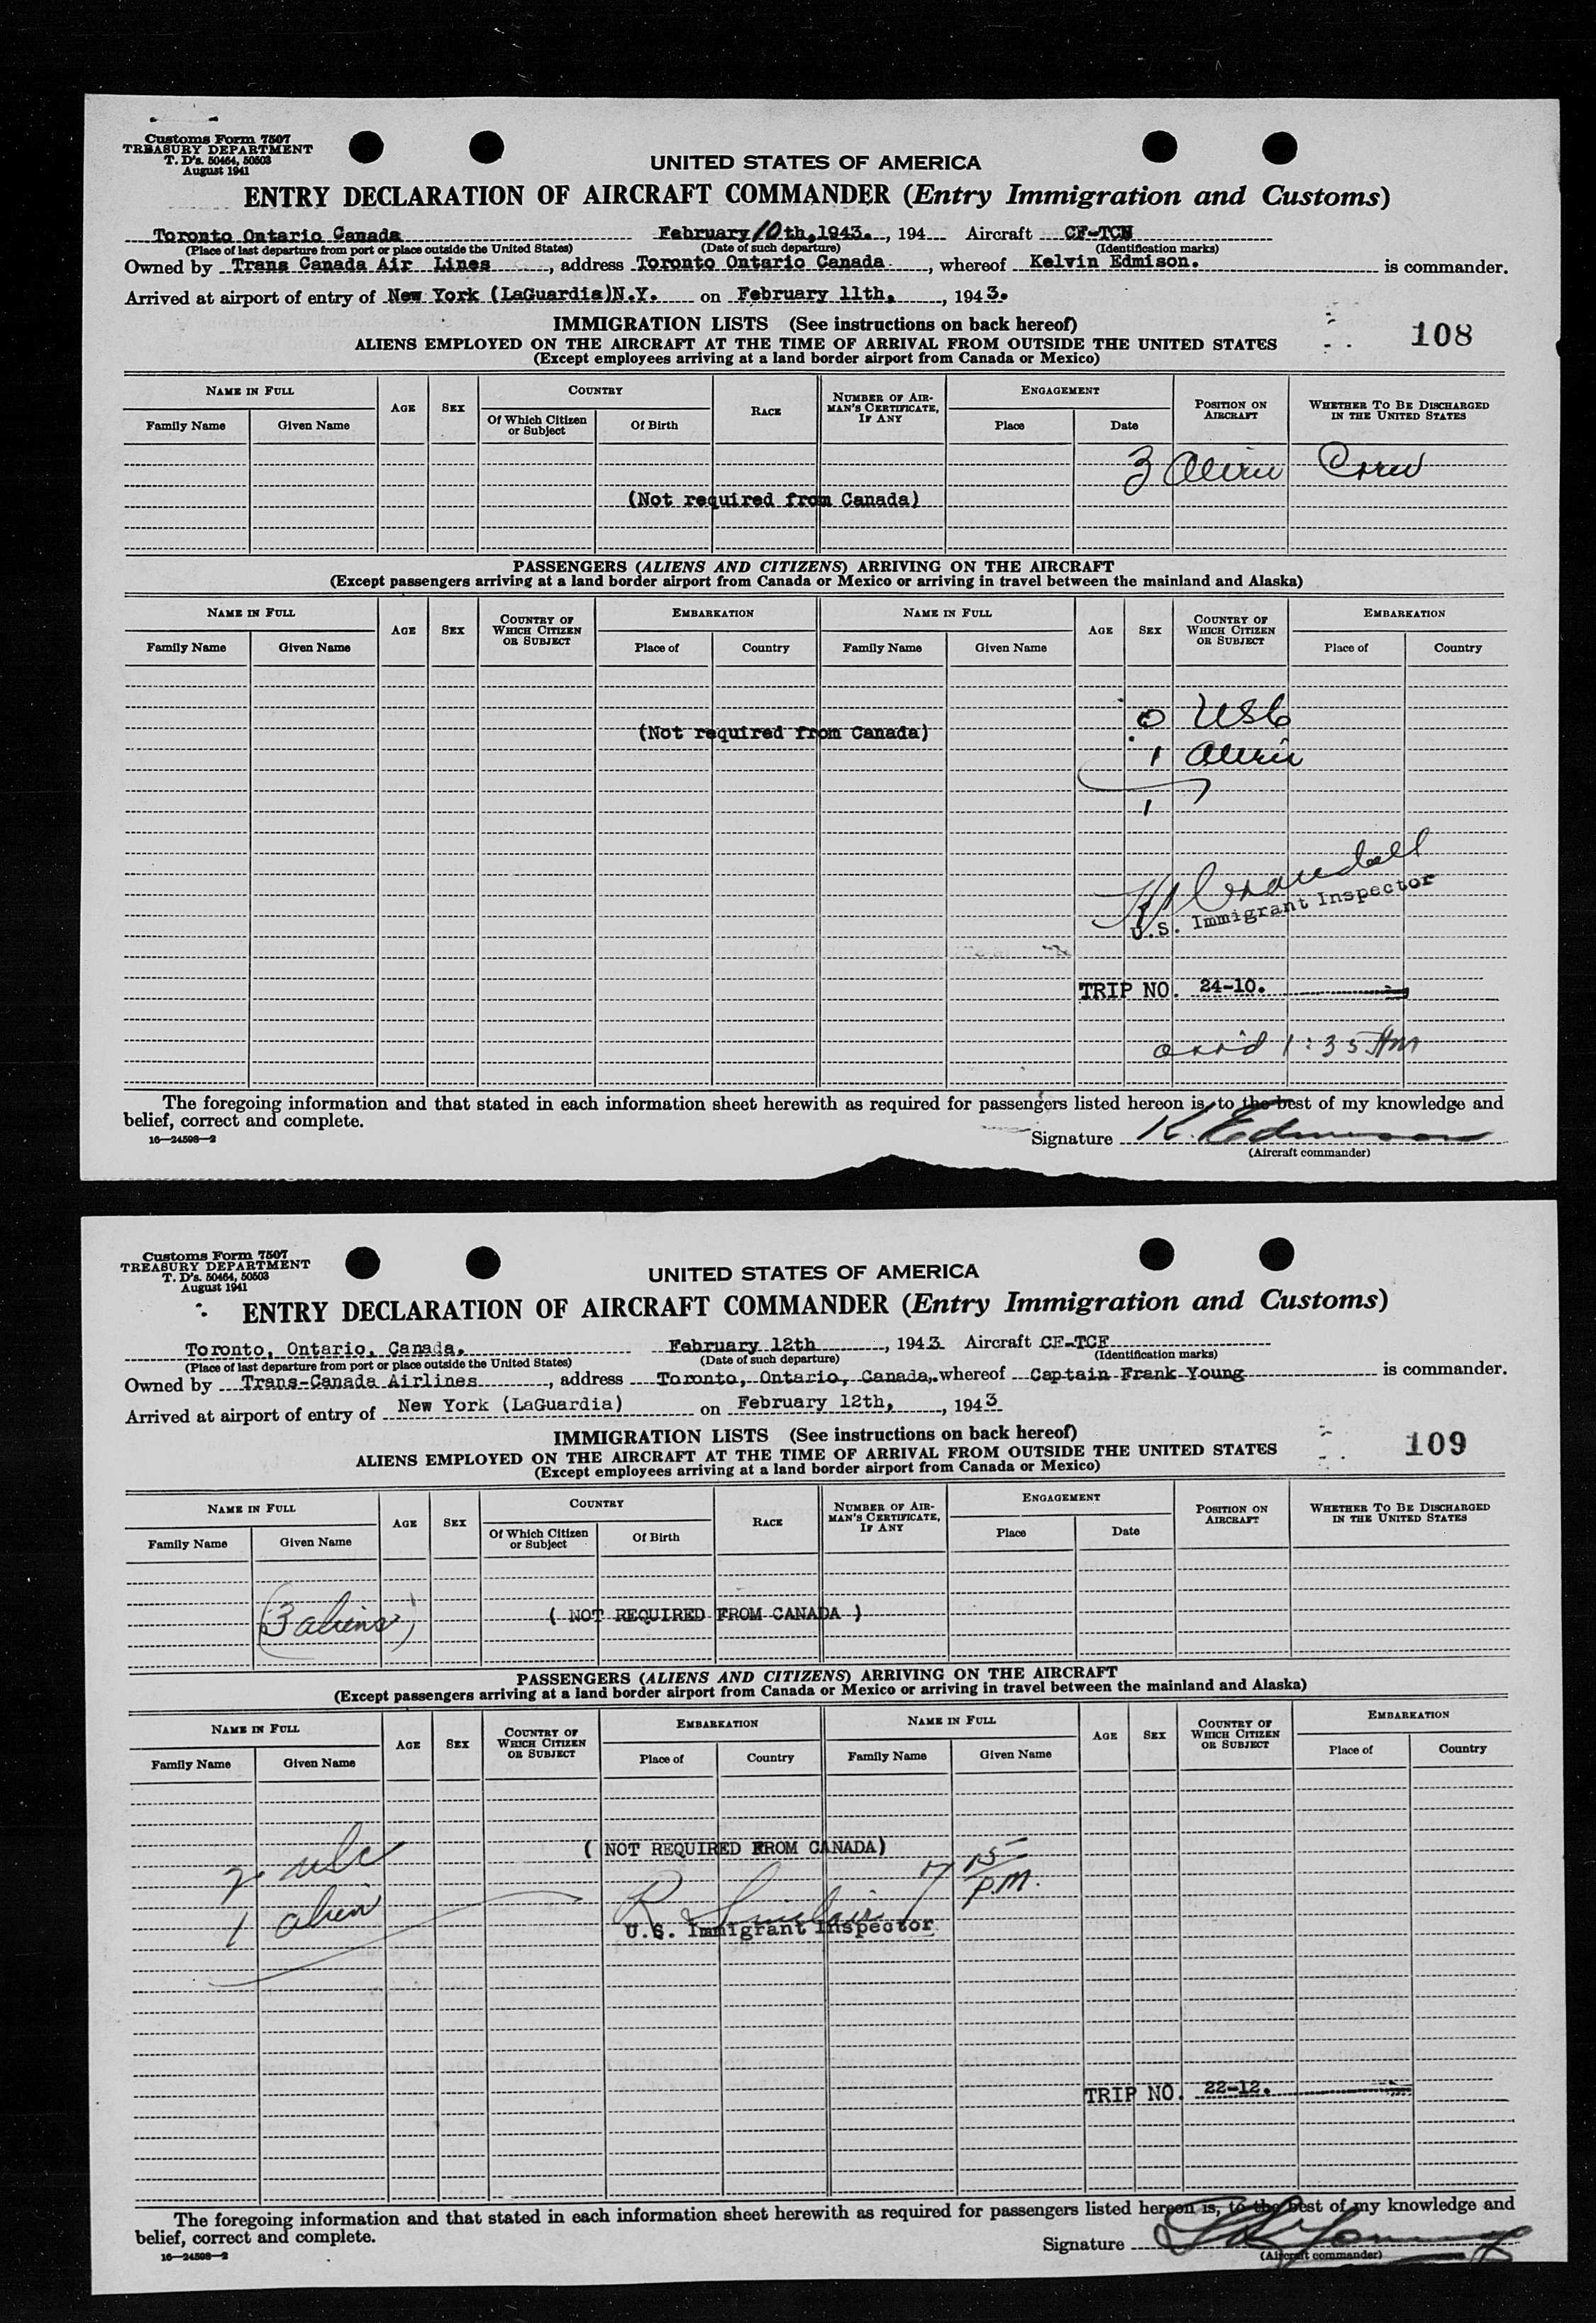 Customs Form 7507
TREASURY DEPARTMENT
T. D's. 50464, 50503
August 1941
UNITED STATES OF AMERICA
ENTRY DECLARATION OF AIRCRAFT COMMANDER (Entry Immigration and Customs)
Toronto Ontario Canada February 10th, 1943. , 194 Aircraft CF-TCN
(Place of last departure from port or place outside the United States) (Date of such departure) (Identification marks)
Owned by Trans Canada Air Lines , address Toronto Ontario Canada. , whereof Kelvin Edmison. is commander.
Arrived at airport of entry of New York (LaGuardia)N.Y. on February 11th, , 1943.
IMMIGRATION LISTS (See instructions on back hereof)
108
ALIENS EMPLOYED ON THE AIRCRAFT AT THE TIME OF ARRIVAL FROM OUTSIDE THE UNITED STATES
(Except employees arriving at a land border airport from Canada or Mexico)
NAME IN FULL AGE SEX COUNTRY RACE NUMBER OF AIRMAN'S CERTIFICATE, IF ANY ENGAGEMENT POSITION ON AIRCRAFT WHETHER TO BE DISCHARGED IN THE UNITED STATES
Family Name Given Name Of Which Citizen or Subject Of Birth Place Date
3 Alien Crew
(Not required from Canada)
PASSENGERS (ALIENS AND CITIZENS) ARRIVING ON THE AIRCRAFT
(Except passengers arriving at a land border airport from Canada or Mexico or arriving in travel between the mainland and Alaska)
NAME IN FULL AGE SEX COUNTRY OF WHICH CITIZEN OR SUBJECT EMBARKATION NAME IN FULL AGE SEX COUNTRY OF WHICH CITIZEN OR SUBJECT EMBARKATION
Family Name Given Name Place of Country Family Name Given Name Place of Country
0 USC
(Not required from Canada)
1 Alien
1
Crandall
U.S. Immigrant Inspector
TRIP NO. 24-10.
arr'd 1:35 AM
The foregoing information and that stated in each information sheet herewith as required for passengers listed hereon is, to the best of my knowledge and
belief, correct and complete.
16—24598—2
Signature K. Edmison
(Aircraft commander)
Customs Form 7507
TREASURY DEPARTMENT
T. D's. 50464, 50503
August 1941
UNITED STATES OF AMERICA
ENTRY DECLARATION OF AIRCRAFT COMMANDER (Entry Immigration and Customs)
Toronto, Ontario, Canada, February 12th , 1943 Aircraft CF-TCF
(Place of last departure from port or place outside the United States) (Date of such departure) (Identification marks)
Owned by Trans-Canada Airlines , address Toronto, Ontario, Canada, whereof Captain Frank Young is commander.
Arrived at airport of entry of New York (LaGuardia) on February 12th, , 1943
IMMIGRATION LISTS (See instructions on back hereof)
109
ALIENS EMPLOYED ON THE AIRCRAFT AT THE TIME OF ARRIVAL FROM OUTSIDE THE UNITED STATES
(Except employees arriving at a land border airport from Canada or Mexico)
NAME IN FULL AGE SEX COUNTRY RACE NUMBER OF AIRMAN'S CERTIFICATE, IF ANY ENGAGEMENT POSITION ON AIRCRAFT WHETHER TO BE DISCHARGED IN THE UNITED STATES
Family Name Given Name Of Which Citizen or Subject Of Birth Place Date
(3 aliens) ( NOT REQUIRED FROM CANADA )
PASSENGERS (ALIENS AND CITIZENS) ARRIVING ON THE AIRCRAFT
(Except passengers arriving at a land border airport from Canada or Mexico or arriving in travel between the mainland and Alaska)
NAME IN FULL AGE SEX COUNTRY OF WHICH CITIZEN OR SUBJECT EMBARKATION NAME IN FULL AGE SEX COUNTRY OF WHICH CITIZEN OR SUBJECT EMBARKATION
Family Name Given Name Place of Country Family Name Given Name Place of Country
( NOT REQUIRED FROM CANADA)
2 usc
7 15 P.M.
1 alien
R Sinclair
U.S. Immigrant Inspector
TRIP NO. 22-12.
The foregoing information and that stated in each information sheet herewith as required for passengers listed hereon is, to the best of my knowledge and
belief, correct and complete.
16—24598—2
Signature
(Aircraft commander)